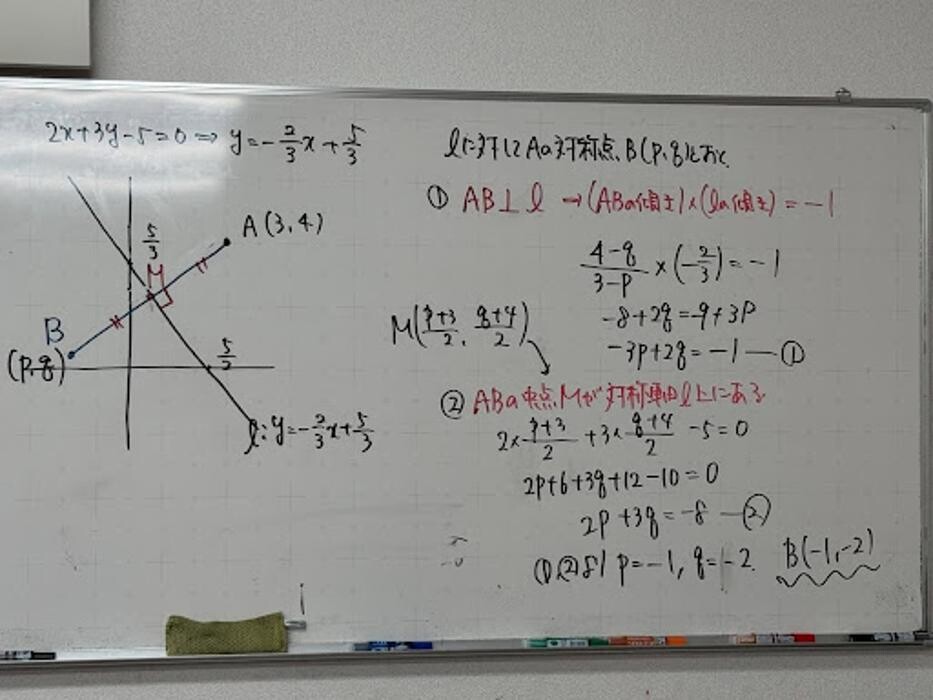 2x+3y-5=0 ⇒ y=-2/3x+5/3
A(3,4)
5/3
M
B
(p,q)
5/2
l:y=-2/3x+5/3
lに対してAの対称点B(p,q)とおく
① AB⊥l → (ABの傾き)×(lの傾き)=-1
4-q/3-p×(-2/3)=-1
-8+2q=-9+3p
-3p+2q=-1―①
M(p+3/2, q+4/2)
② ABの中点Mが対称軸l上にある
2×p+3/2+3×q+4/2-5=0
2p+6+3q+12-10=0
2p+3q=-8―②
①②より p=-1, q=-2 B(-1,-2)